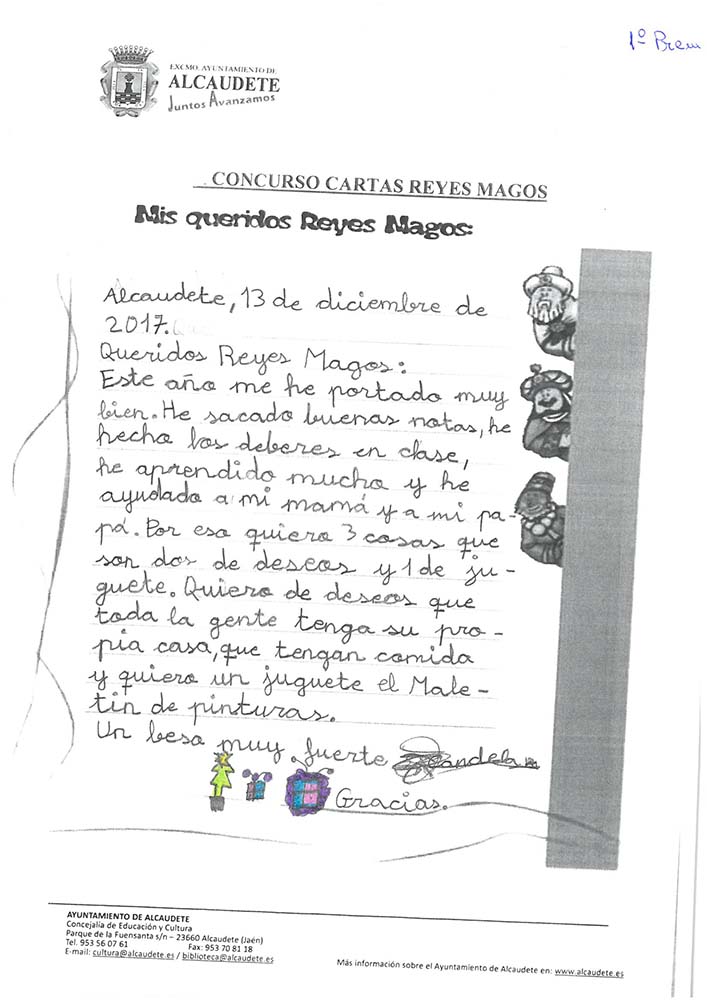 1º Prem
EXCMO. AYUNTAMIENTO DE
ALCAUDETE
Juntos Avanzamos
CONCURSO CARTAS REYES MAGOS
Mis queridos Reyes Magos:
Alcaudete, 13 de diciembre de
2017.
Queridos Reyes Magos:
Este año me he portado muy
bien. He sacado buenas notas, he
hecho los deberes en clase,
he aprendido mucho y he
ayudado a mi mamá y a mi pa-
pá. Por eso quiero 3 cosas que
son dos de deseos y 1 de ju-
guete. Quiero de deseos que
toda la gente tenga su pro-
pia casa, que tengan comida
y quiero un juguete el Male-
tín de pinturas.
Un beso muy fuerte Candela
Gracias.
AYUNTAMIENTO DE ALCAUDETE
Concejalía de Educación y Cultura
Parque de la Fuensanta s/n – 23660 Alcaudete (Jaén)
Tel. 953 56 07 61 Fax: 953 70 81 18
E-mail: cultura@alcaudete.es / biblioteca@alcaudete.es
Más información sobre el Ayuntamiento de Alcaudete en: www.alcaudete.es